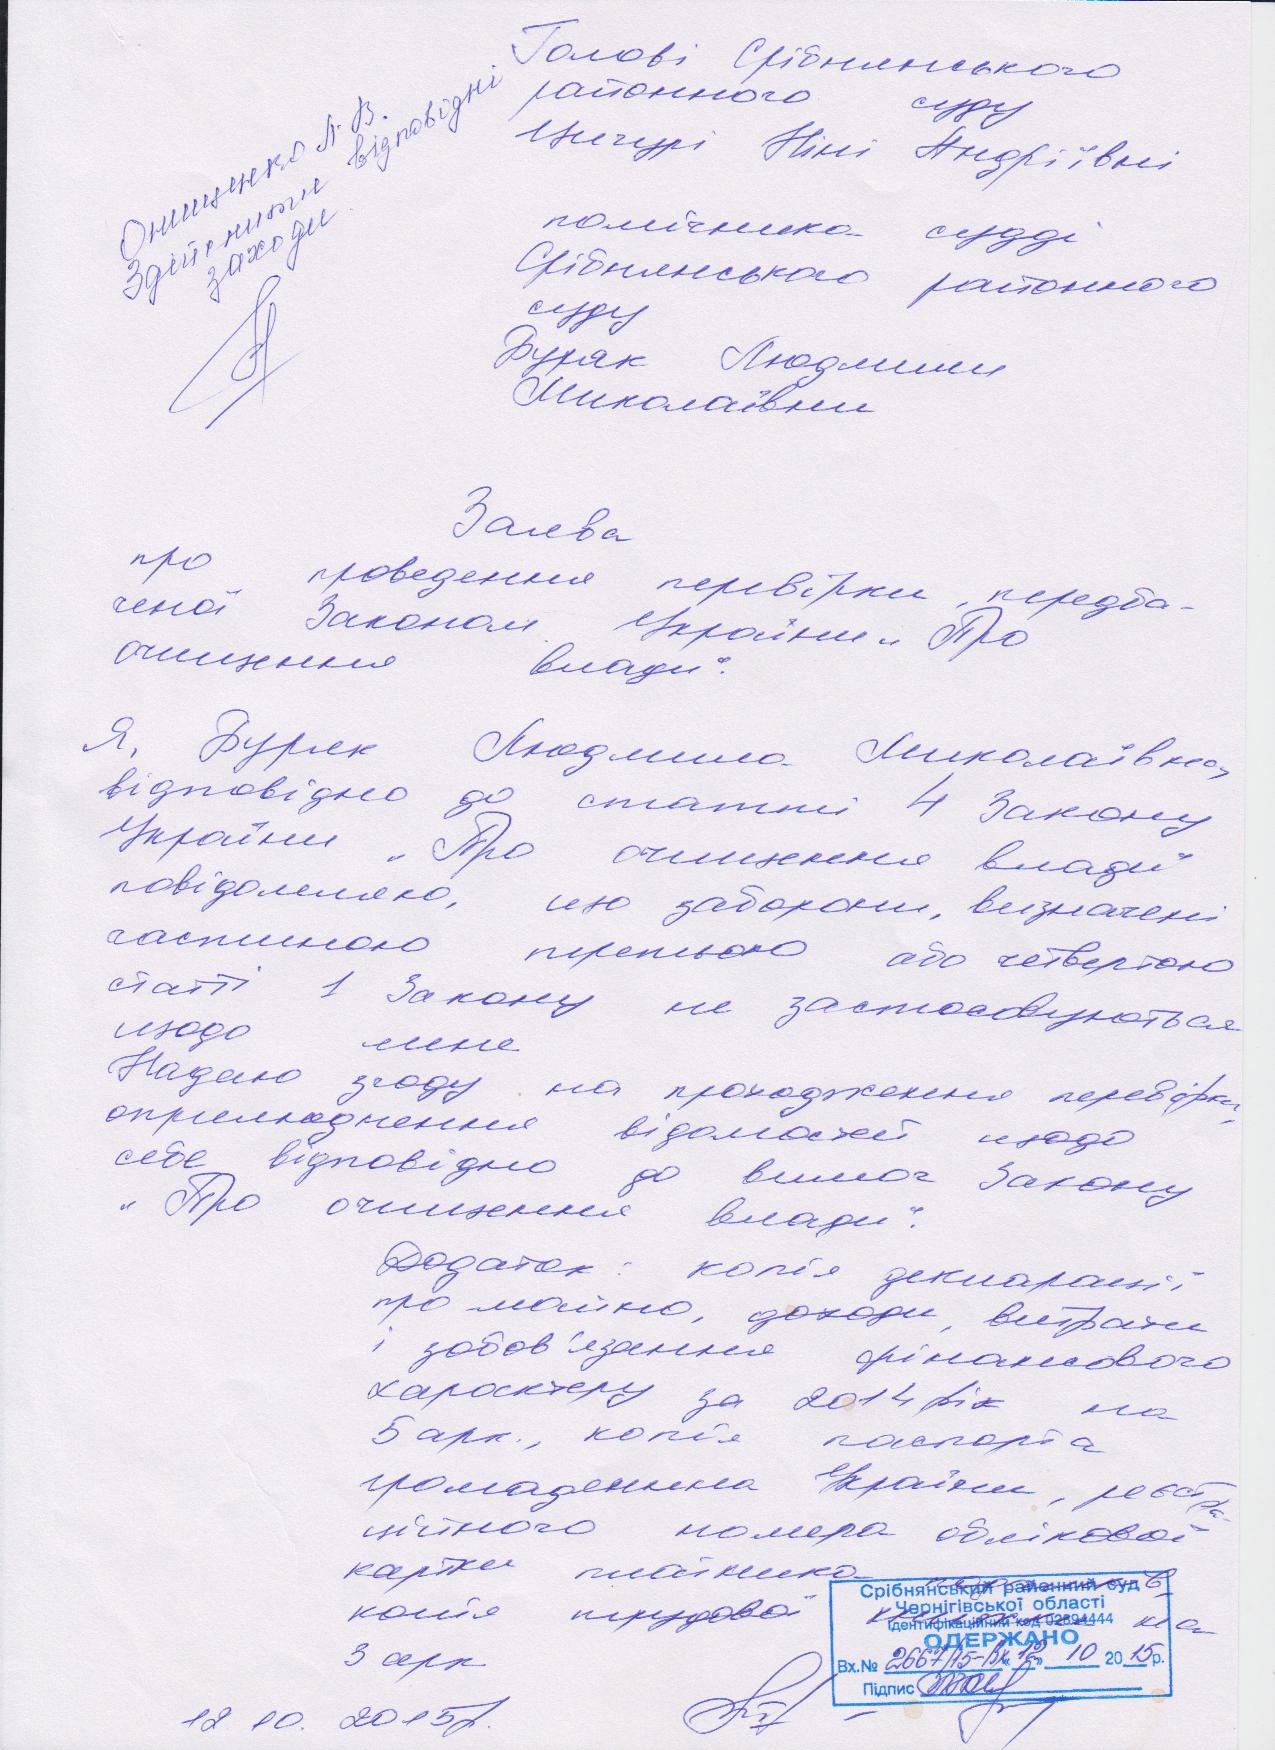 Голові Срібнянського
районного суду
Цигурі Ніні Андріївні
Онищенко Л. В.
Здійснити відповідні
заходи
помічника судді
Срібнянського районного
суду
Буряк Людмили
Миколаївни
Заява
про проведення перевірки, передба-
ченої Законом України „Про
очищення влади".
Я, Буряк Людмила Миколаївна,
відповідно до статті 4 Закону
України „Про очищення влади"
повідомляю, що заборони, визначені
частиною третьою або четвертою
статті 1 Закону не застосовуються
щодо мене
Надаю згоду на проходження перевірки,
оприлюднення відомостей щодо
себе відповідно до вимог Закону
„Про очищення влади".
Додаток: копія декларації
про майно, доходи, витрати
і зобов'язання фінансового
характеру за 2014 рік на
5 арк., копія паспорта
громадянина України, реєстра-
ційного номера облікової
картки платника податків,
копія трудової книжки на
3 арк
12.10.2015р.
Срібнянський районний суд
Чернігівської області
Ідентифікаційний код 02894444
ОДЕРЖАНО
Вх.№ 2667/15-Вх „12" 10 2015р.
Підпис